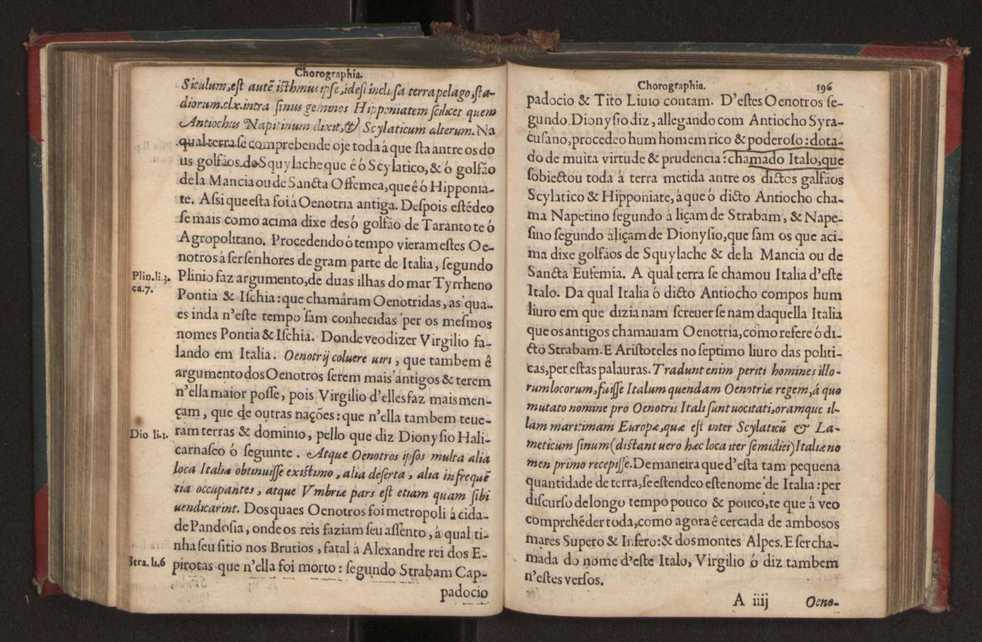 Chorographia.
Siculum, est autē isthmus ipse, idest inclusa terra pelago, sta-
diorum.clx.intra sinus geminos Hipponiatem scilices quem
Antiochus Napitinum dixit, & Scylaticum alterum. Na
qual terra se comprehende oje toda à que sta antre os do
us golfãos.de Squylache que é ò Scylatico, & ò golfão
de la Mancia ou de Sancta Offemea, que é ò Hipponia-
te. Assi que esta foi à Oenotria antiga. Despois estēdeo
se mais como acima dixe des ò golfão de Taranto te ò
Agropolitano. Procedendo ò tempo vieram estes Oe-
notros à ser senhores de gram parte de Italia, segundo
Plin.li.3.
ca.7.
Plinio faz argumento, de duas ilhas do mar Tyrrheno
Pontia & Ischia: que chamâram Oenotridas, as qua-
es inda n'este tempo sam conhecidas per os mesmos
nomes Pontia & Ischia. Donde veo dizer Virgilio fa-
lando em Italia. Oenotrij coluere viri, que tambem ê
argumento dos Oenotros serem mais antigos & terem
n'ella maior posse, pois Virgilio d'elles faz mais men-
çam, que de outras nações: que n'ella tambem teue-
Dio li.1.
ram terras & dominio, pello que diz Dionysio Hali-
carnaseo ò seguinte. Atque Oenotros ipsos multa alia
loca Italiæ obtinuisse existimo, alia deserta, alia infrequē
tia occupantes, atque Vmbriæ pars est etiam quam sibi
uendicarint. Dos quaes Oenotros foi metropoli à cida-
de Pandosia, onde os reis faziam seu assento, à qual ti-
nha seu sitio nos Brutios, fatal à Alexandre rei dos E-
Stra.li.6
pirotas que n'ella foi morto: segundo Strabam Cap-
padocio
Chorographia.
196
padocio & Tito Liuio contam. D'estes Oenotros se-
gundo Dionysio diz, allegando com Antiocho Syra-
cusano, procedeo hum homem rico & poderoso: dota-
do de muita virtude & prudencia: chamado Italo, que
sobiectou toda à terra metida antre os dictos galfãos
Scylatico & Hipponiate, à que ò dicto Antiocho cha-
ma Napetino segundo à liçam de Strabam, & Nape-
sino segundo à liçam de Dionysio, que sam os que aci-
ma dixe golfãos de Squylache & de la Mancia ou de
Sancta Eufemia. A qual terra se chamou Italia d'este
Italo. Da qual Italia ò dicto Antiocho compos hum
liuro em que dizia nam screuer se nam daquella Italia
que os antigos chamauam Oenotria, como refere ò di-
cto Strabam. E Aristoteles no septimo liuro das politi-
cas, per estas palauras. Tradunt enim periti homines illo-
rum locorum, fuisse Italum quendam Oenotriæ regem, à quo
mutato nomine pro Oenotris Itali sunt uocitati, oramque il-
lam maritimam Europæ, quæ est inter Scylaticũ & La-
meticum sinum (distant uero hæc loca iter semidiei) Italiæ no
men primo recepisse. De maneira que d'esta tam pequena
quantidade de terra, se estendeo este nome de Italia: per
discurso de longo tempo pouco & pouco, te que à veo
comprehēder toda, como agora ê cercada de ambosos
mares Supero & Infero: & dos montes Alpes. E ser cha-
mada do nome d'este Italo, Virgilio ò diz tambem
n'estes versos.
A iiij
Oeno-